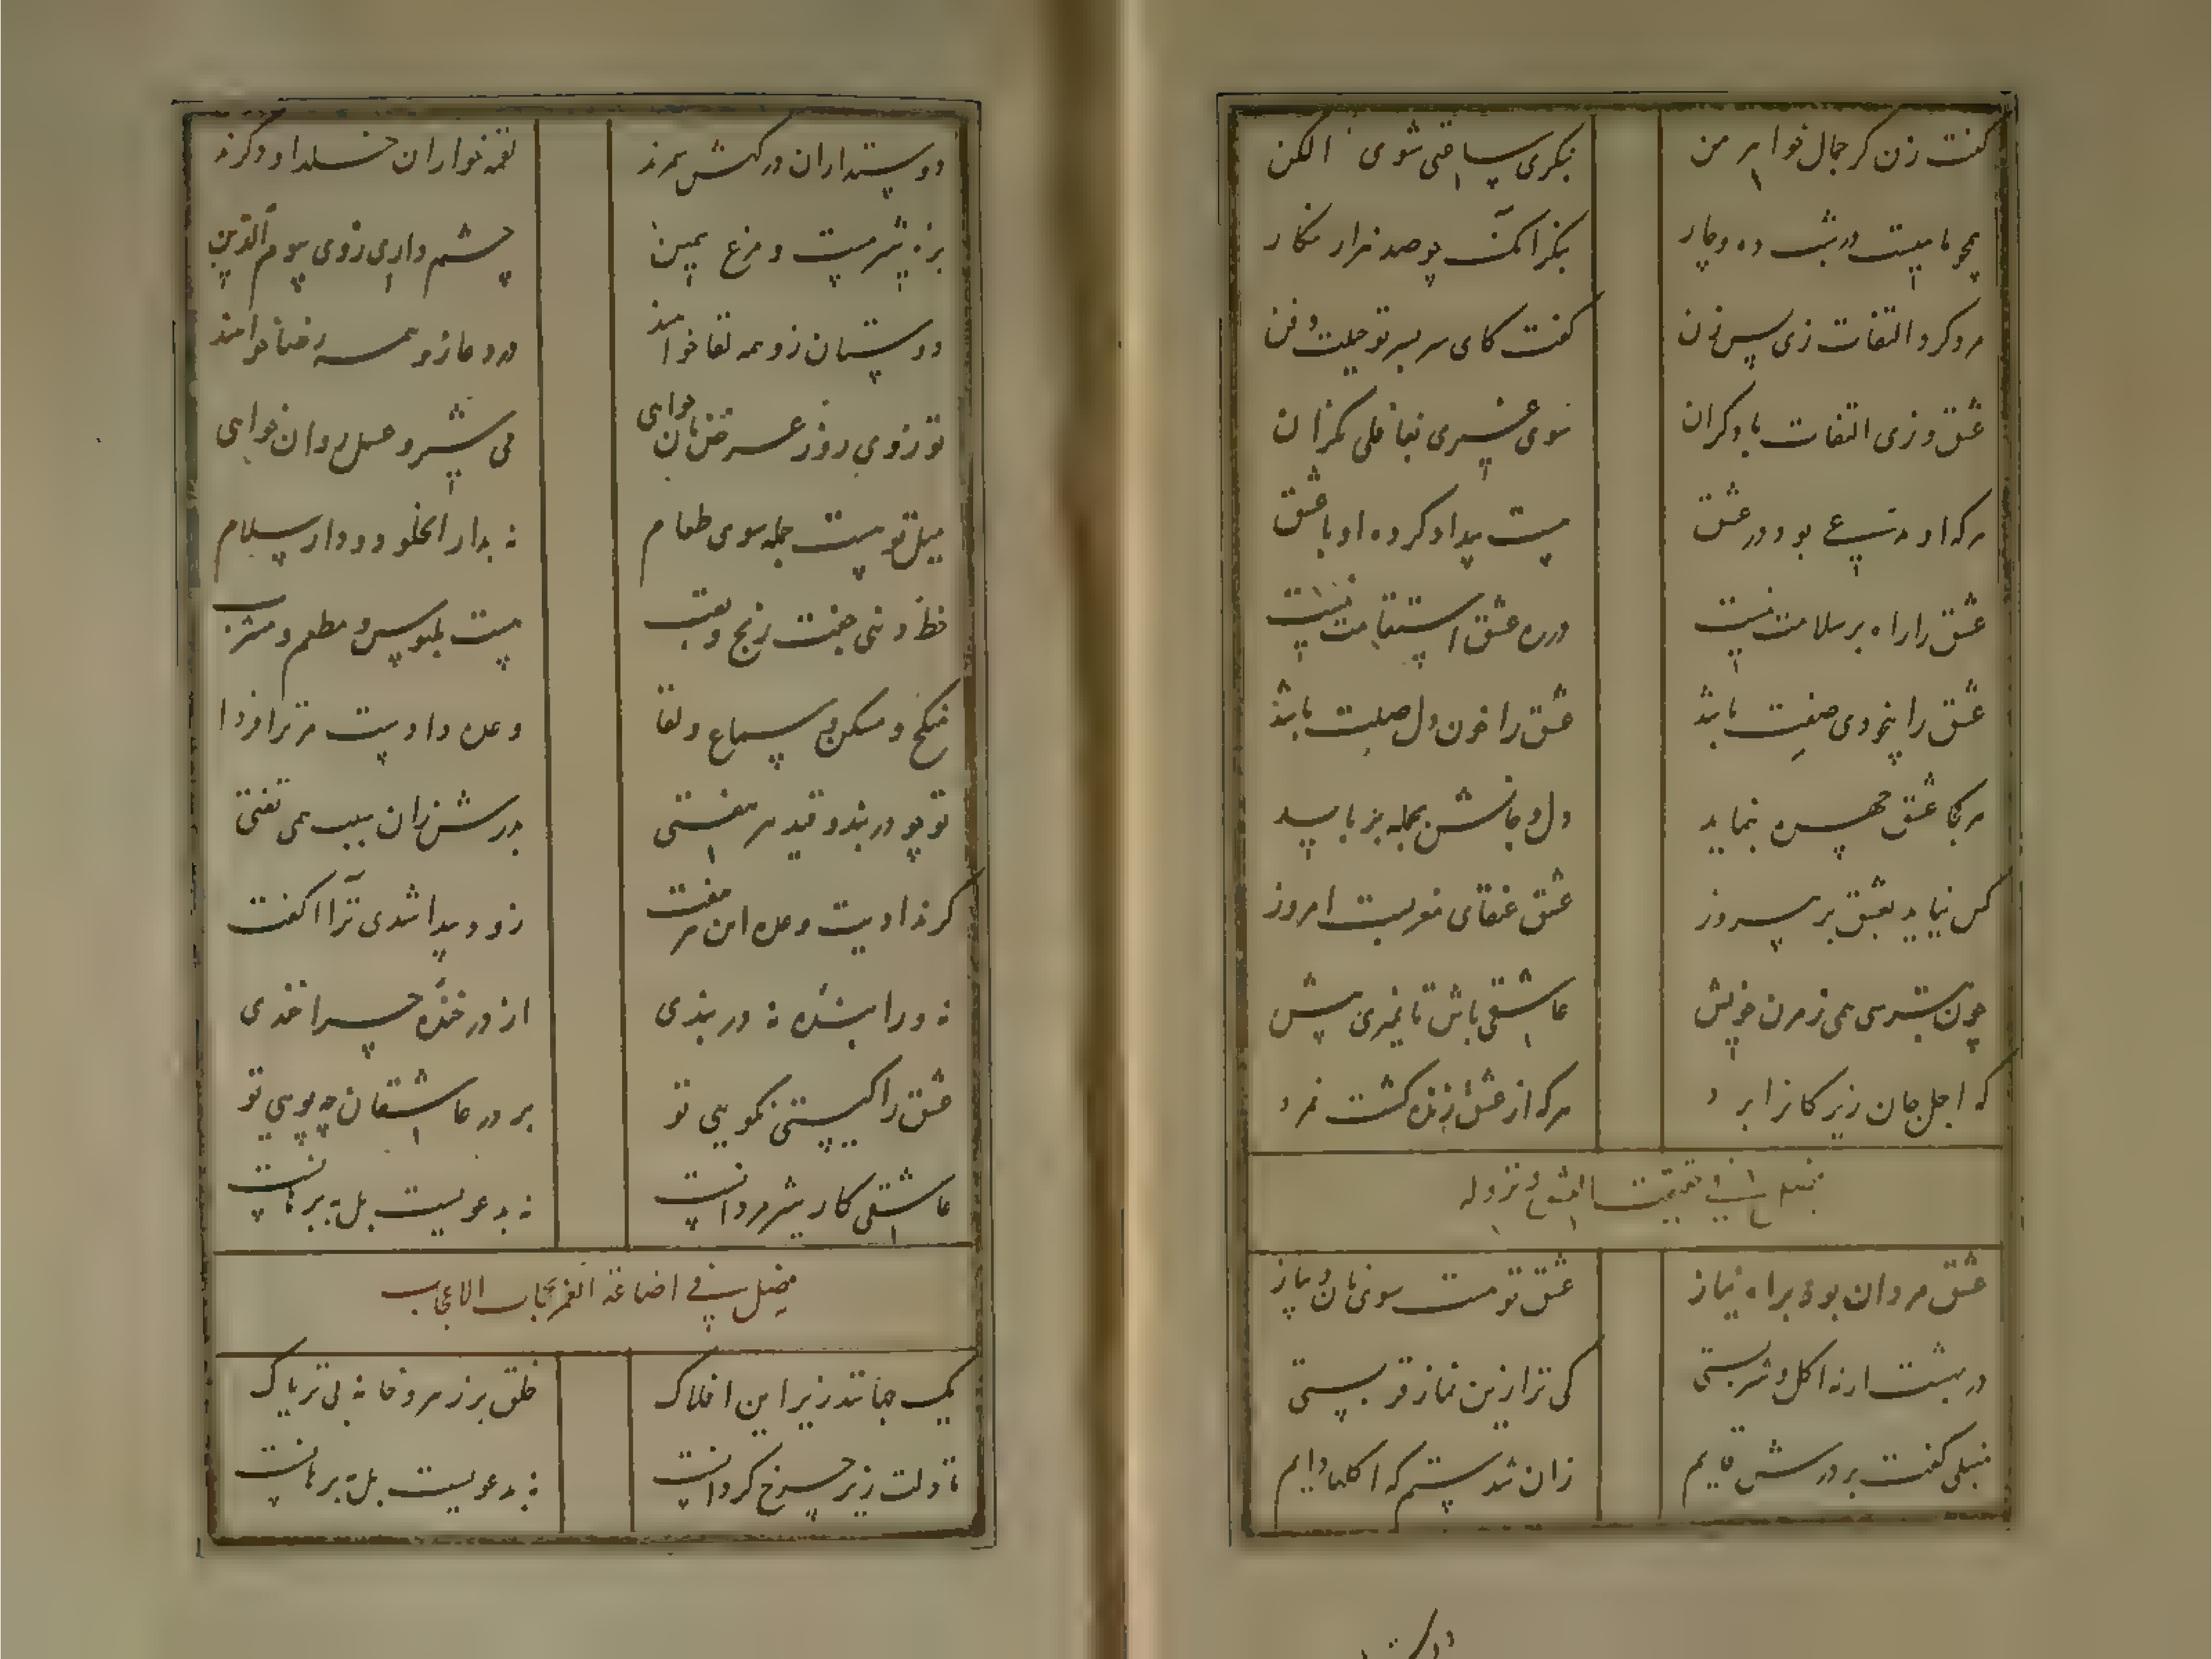 گفت زن گر جمال خواهر من
بنگری ساعتی شوی الکن
همچو ماهیست در شب ده و چار
بنگر آنک چو صد هزار نگار
مرد کرد التفات زی پس زن
گفت کای سربسر تو حیلت و فن
عشق و زی التفات با دگران
سوی غیری بغافلی نگران
هرکه او مدعی بود در عشق
هست بیداد کرده او با عشق
عشق را راه بر سلامت نیست
در ره عشق استقامت نیست
عشق را بیخودی صفت باشد
عشق را خون دل صلت باشد
هر کجا عشق چهره بنماید
دل و جانش بجمله برباید
کس نیاید بعشق بر پیروز
عشق عنقای مغربست امروز
چون بترسی همی ز مردن خویش
عاشقی باش تا نمیری پیش
که اجل جان زیرکان را برد
هرکه از عشق زنده گشت نمرد
فصل فی حقیقت العشق و نزوله
عشق مردان بود براه نیاز
عشق تو هست سوی نان و پیاز
در بهشت ار نه اکل و شربستی
کی ترا زین نماز قربستی
منبلی گفت بر درش قایم
زان شدستم که اکلها دایم
دوستداران درگهش سمرند
لقمه خواران خلد او دگرند
بره شیرمست و مرغ سمین
چشم داری زوی یوم الدین
دوستان زو همه لقا خواهند
در دعا زو همه رضا خواهند
تو زوی روز عرض نان خواهی
می و شیر و عسل روان خواهی
میل تو هست جمله سوی طعام
نه بدار الخلود و دار سلام
حظ دنیی جفت رنج و تعب
هست ملبوس و مطعم و مشرب
منکح و مسکن و سماع و لقا
وعده دادست مر ترا فردا
تو چو در بند و قید هر هفتی
بدرش زان سبب همی تفتی
گر ندادیت وعده این هر هفت
زود پیدا شدی ترا آکفت
نه ورا بنده نه در بندی
از در خنده چرا خندی
عشق را کیستی نگویی تو
بر در عاشقان چه پویی تو
عاشقی کار شیرمردانست
نه بدعویست بل ببرهانست
فصل فی اضاعة العمر بحاب الاعجاب
یک جهانند زیر این افلاک
خلق بر زهر و خانه بی تریاک
تا دلت زیر چرخ گردانست
نه بدعویست بل ببرهانست